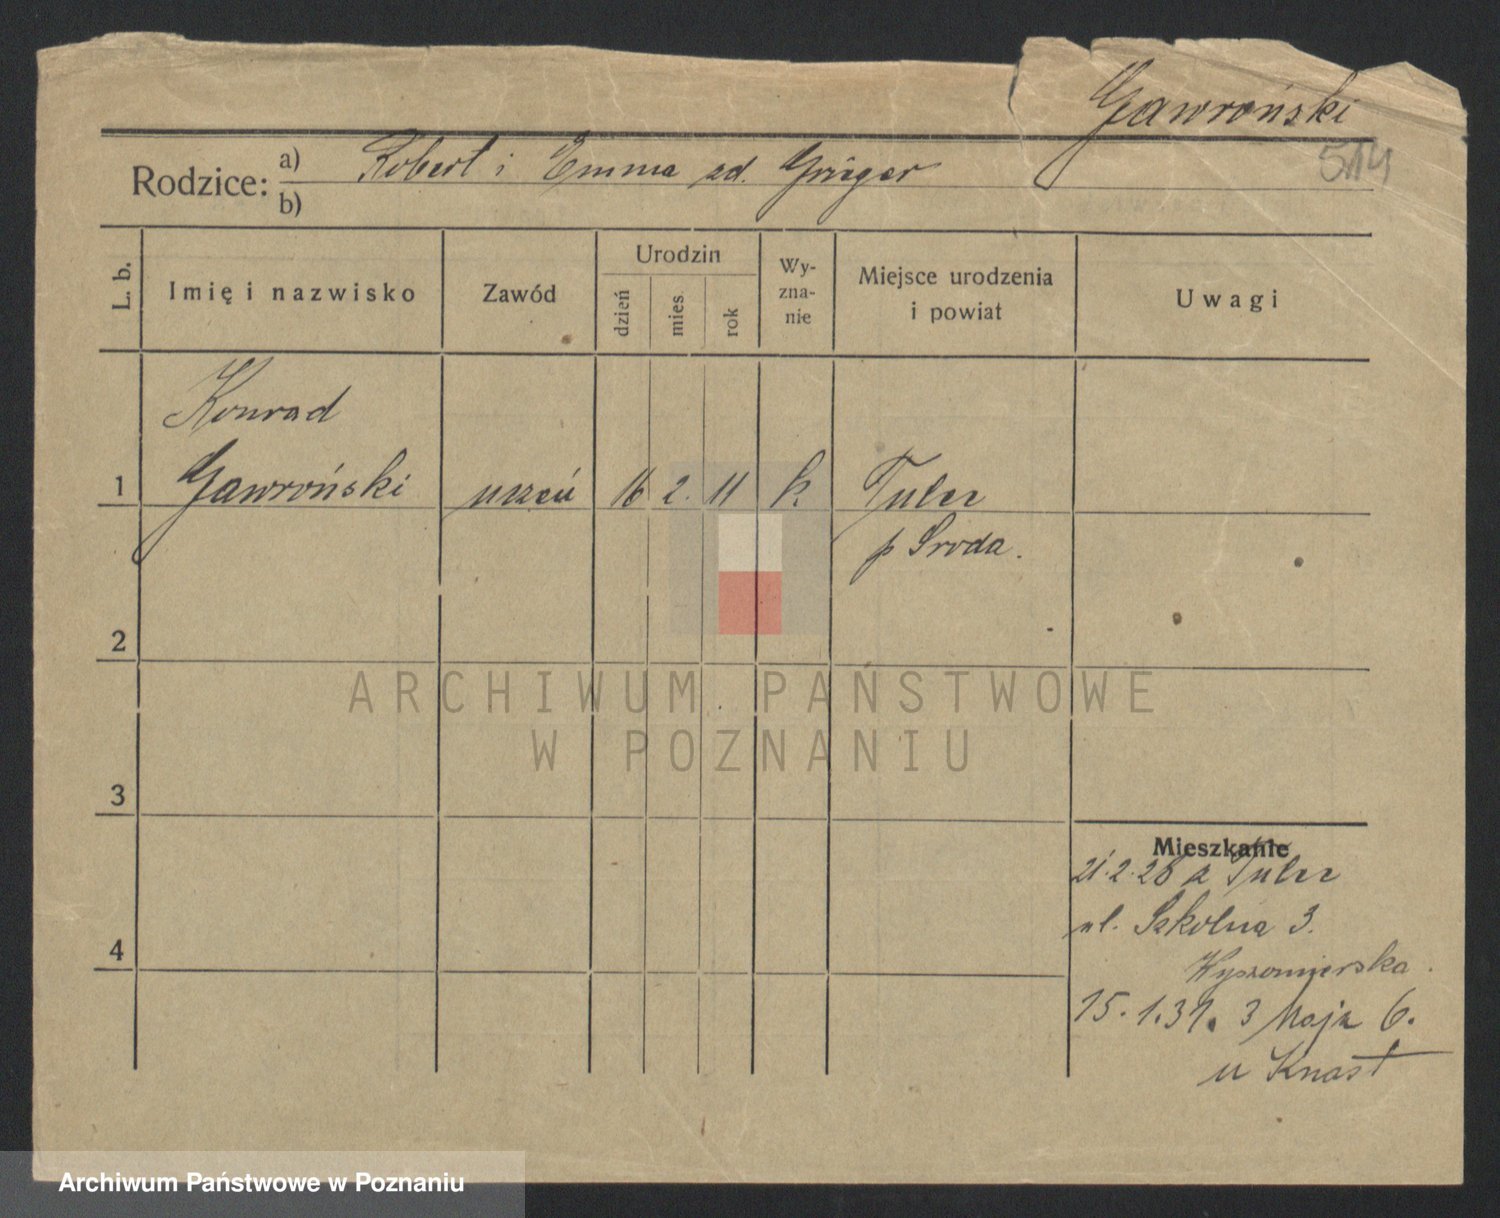 Gawroński
514
Rodzice: a) Robert i Emma zd. Grieger
b)
L. b.
Imię i nazwisko
Zawód
Urodzin
dzień
mies.
rok
Wy-
zna-
nie
Miejsce urodzenia
i powiat
Uwagi
Konrad
1 Gawroński uczeń 16 2. 11 k Tulce
p Środa.
2
3
4
ARCHIWUM PAŃSTWOWE
W POZNANIU
Mieszkanie
21.2.28 z Tulce
ul. Szkolna 3.
Wyszomierska.
15.1.31. 3 Maja 6.
u Knast
Archiwum Państwowe w Poznaniu